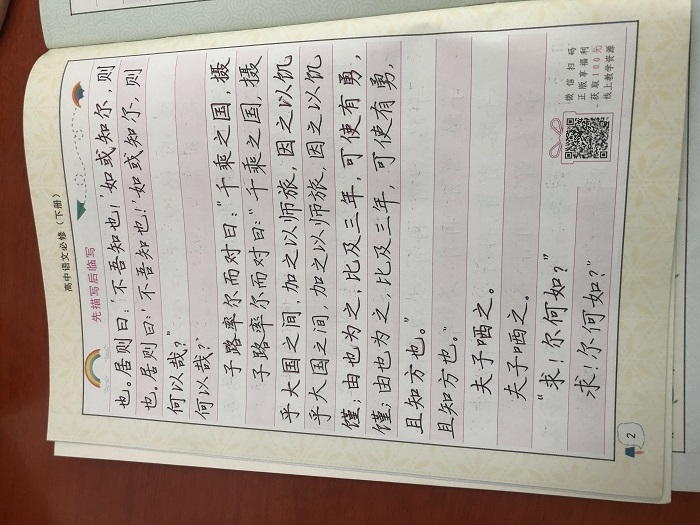 高中语文必修（下册）
先描写后临写
也。居则曰：‘不吾知也！’如或知尔，则
也。居则曰：‘不吾知也！’如或知尔，则
何以哉？”
何以哉？”
子路率尔而对曰：“千乘之国，摄
子路率尔而对曰：“千乘之国，摄
乎大国之间，加之以师旅，因之以饥
乎大国之间，加之以师旅，因之以饥
馑；由也为之，比及三年，可使有勇，
馑；由也为之，比及三年，可使有勇，
且知方也。”
且知方也。”
夫子哂之。
夫子哂之。
“求！尔何如？”
求！尔何如？”
微信扫码
正版享福利
获取100元
线上教学资源
2